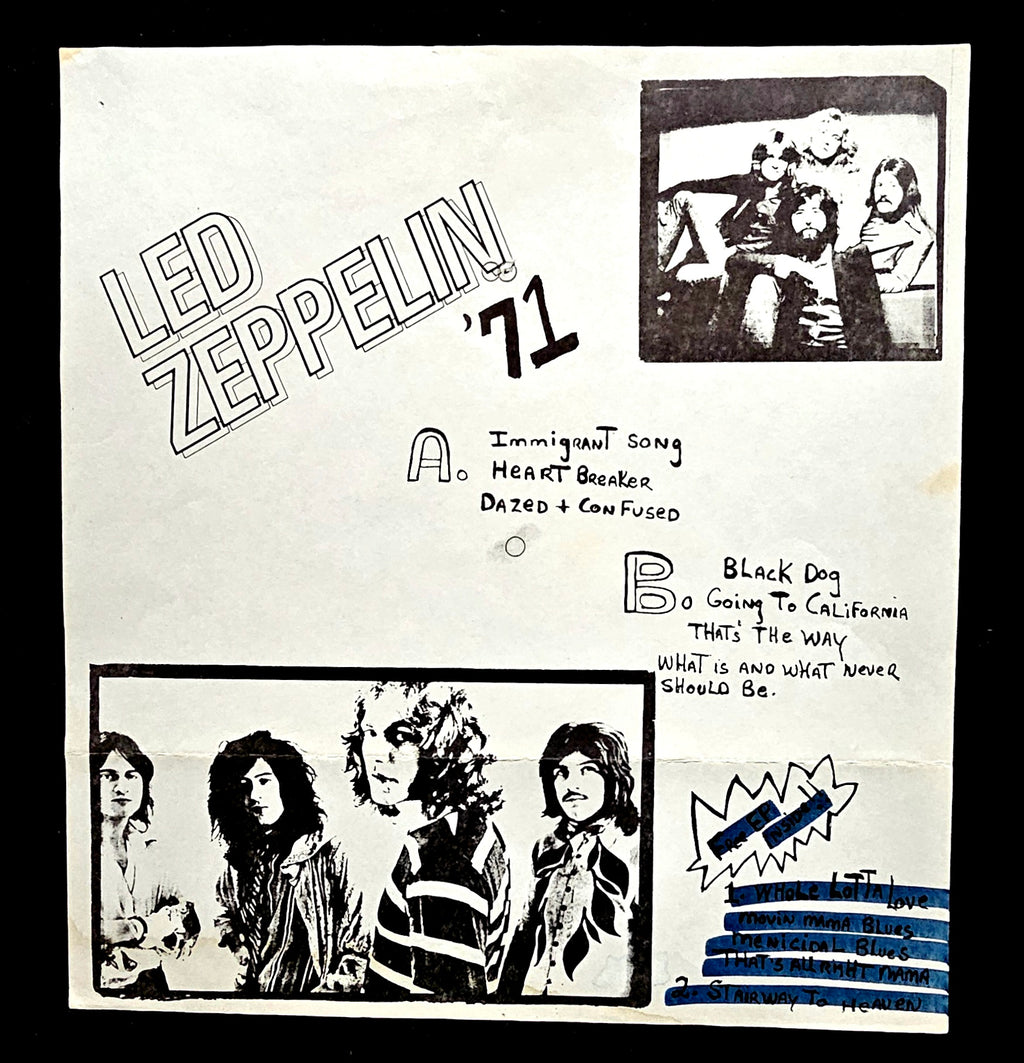 LED
ZEPPELIN
'71
A. Immigrant Song
Heart Breaker
Dazed + Confused
B. Black Dog
Going To California
That's The Way
What is and what never
should be.
Free EP
Inside!
1. Whole Lotta Love
movin mama Blues
menicidal Blues
That's all right mama
2. Stairway To Heaven